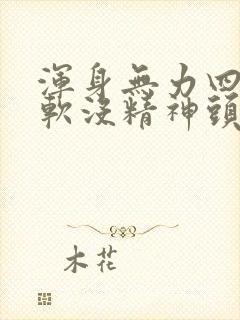 渾身無力四
軟沒精神頭
木花